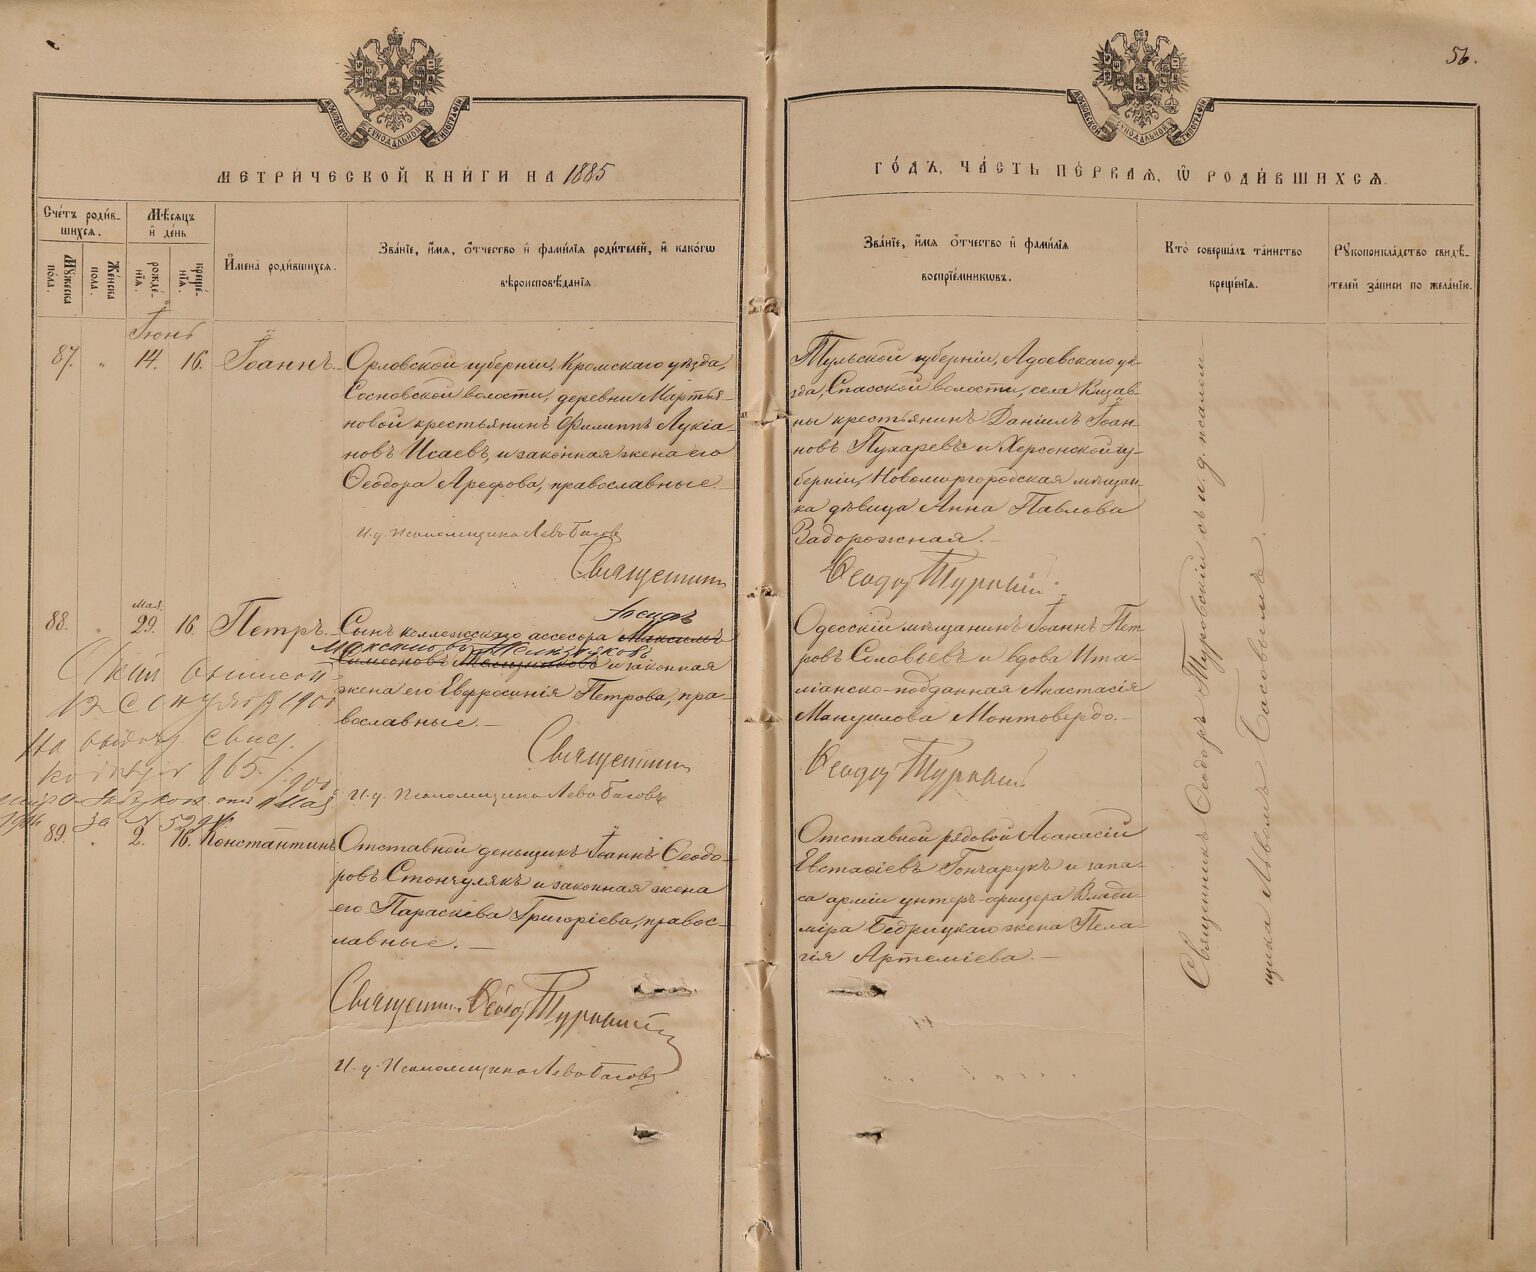 56.
МОСКОВСКОЙ СѴНОДАЛЬНОЙ ТИПОГРАФІИ
МОСКОВСКОЙ СѴНОДАЛЬНОЙ ТИПОГРАФІИ
МЕТРИ́ЧЕСКОЙ КНИ́ГИ НА 1885
ГО́ДЪ, ЧА́СТЬ ПЕ́РВАѦ, Ѡ РОДИ́ВШИХСѦ.
Сче́тъ роди́в-
шихсѧ.
Мꙋ́жеска по́ла.
Же́нска пола.
Мѣ́сяцъ и̂ де́нь
рожде́-
нїѧ.
креще́-
нїѧ.
И҆мена̀ роди́вшихсѧ.
Зва́нїе, и҆́мѧ, ѻ҆́тчество и҆ фами́лїѧ роди́телей, и҆ како́гѡ
вѣроисповѣ́данїѧ.
Зва́нїе, и҆́мѧ ѻ҆́тчество и҆ фами́лїѧ
воспрїе́мникѡвъ.
Кто̀ соверша́лъ та́инство
креще́нїѧ.
Рꙋкоприкла́дство свидѣ́-
телей за́писи по жела́нїю.
Іюнь
87. " 14. 16. Іоаннъ.
Орловской губерніи, Кромскаго уѣзда,
Сосновской волости, деревни Мартья-
новой крестьянинъ Филиппъ Лукіа-
новъ Исаевъ, и законная жена его
Ѳеодора Арефова, православные.
И. д. Псаломщика Левъ Басовъ
Священникъ
Тульской губерніи, Адоевскаго уѣ-
зда, Спасской волости, села
крестьянинъ Даніилъ Іоан-
новъ Пухаревъ и Херсонской гу-
берніи, Новомиргородская мѣщан-
ка дѣвица Анна Павлова
Задорожная.
Ѳеодоръ Туровскій
88. " мая 29. 16. Петръ.
Іосифъ
Сынъ коллежскаго ассесора Максимъ
Максимовъ
Симеоновъ и законная
жена его Евфросинія Петрова, пра-
вославные.
Священникъ
И. д. Псаломщика Левъ Басовъ
Одесскій мѣщанинъ Іоаннъ Пет-
ровъ Соловьевъ и вдова Ита-
ліанско-подданная Анастасія
Мануилова Монтовердо.
Ѳеодоръ Туровскій
1900
865.
1900
89. " 2. 16. Константинъ
Отставной деньщикъ Іоаннъ Ѳеодо-
ровъ Стончулякъ и законная жена
его Параскева Григоріева, правос-
лавные.
Священникъ Ѳеодоръ Туровскій
И. д. Псаломщика Левъ Басовъ
Отставной рядовой Аѳанасій
Евстаѳіевъ Гончарукъ и запа-
са арміи унтеръ-офицера Влади-
міра Бедрицкаго жена Пела-
гія Артеміева.
Священникъ Ѳеодоръ Туровскій съ и. д. псалом-
щика Львомъ Басовымъ.